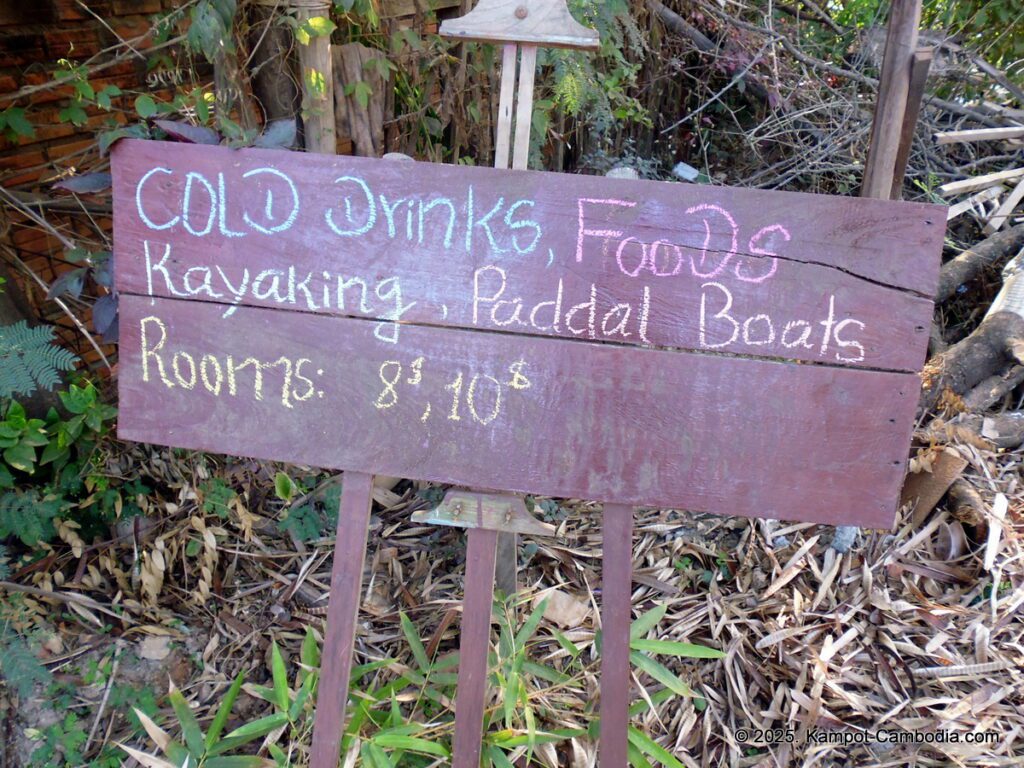 COLD Drinks, FooDs
Kayaking, Paddal Boats
Rooms: 8$, 10$
© 2025. Kampot-Cambodia.com